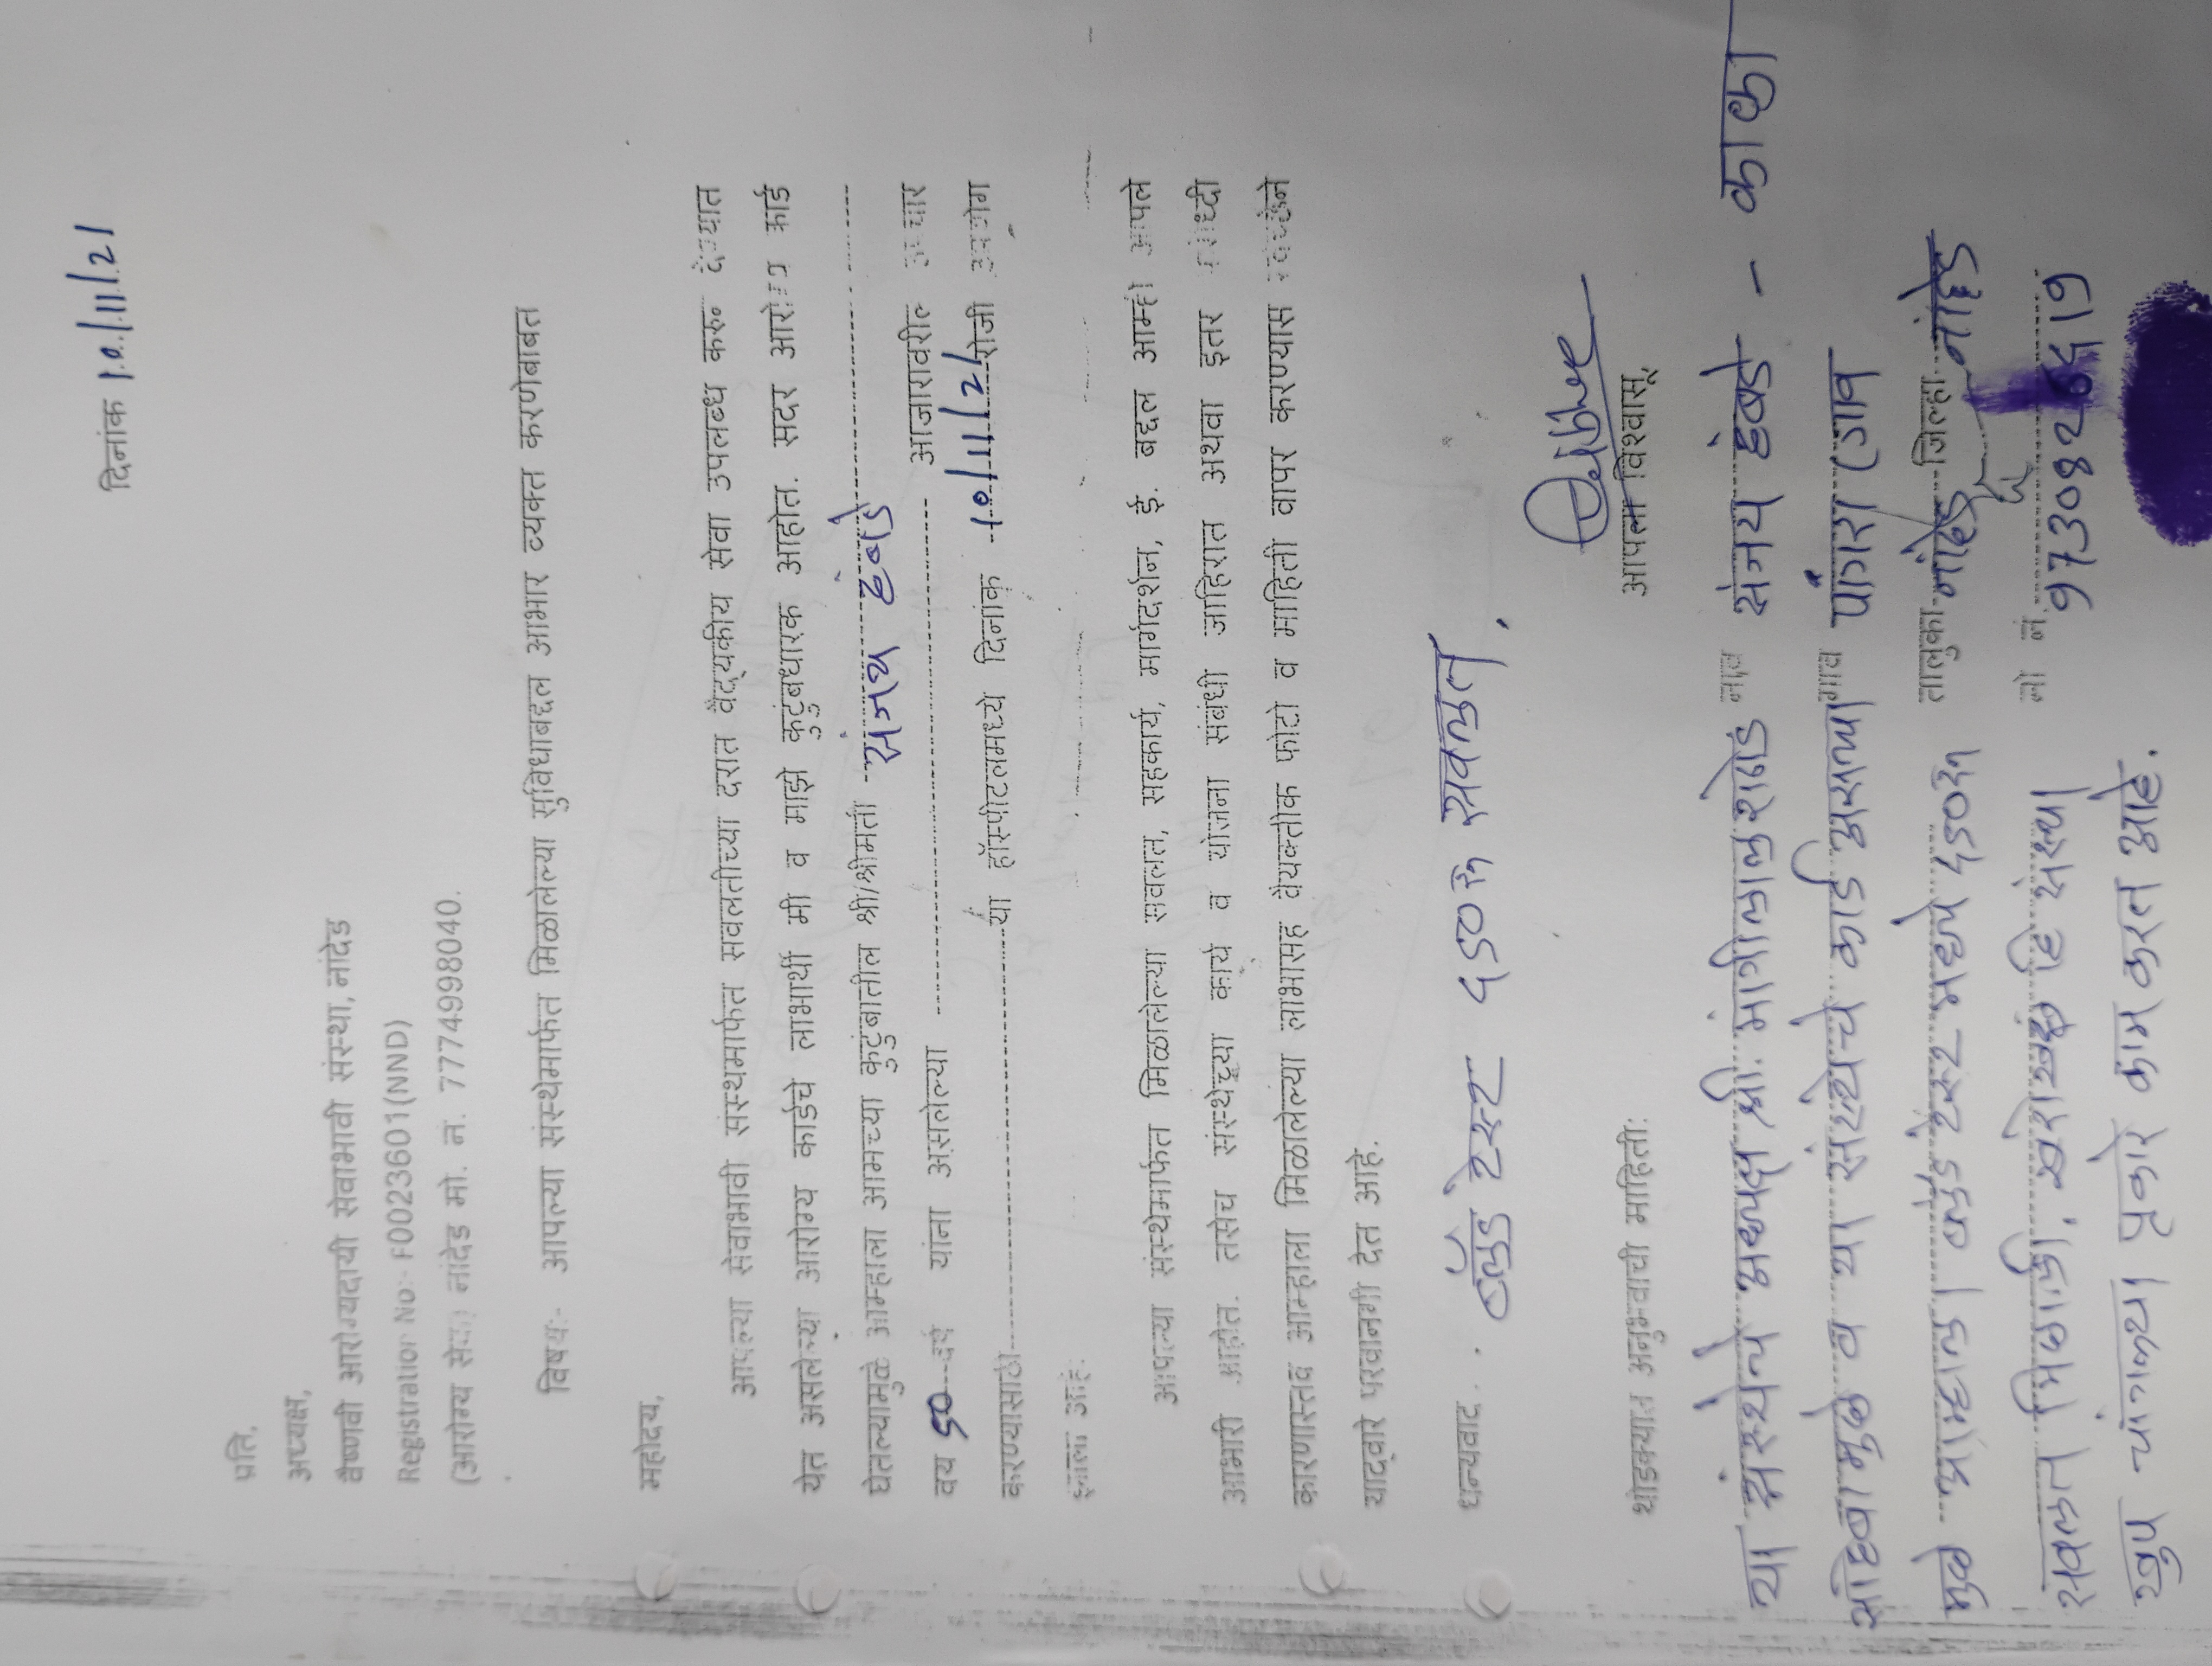 दिनांक 10/11/21
प्रति,
अध्यक्ष,
वैष्णवी आरोग्यदायी सेवाभावी संस्था, नांदेड
Registration No:- F0023601(NND)
(आरोग्य सेवा) नांदेड मो. नं. 7774998040.
विषय:- आपल्या संस्थेमार्फत मिळालेल्या सुविधाबद्दल आभार व्यक्त करणेबाबत
महोदय,
आपल्या सेवाभावी संस्थेमार्फत सवलतीच्या दरात वैद्यकीय सेवा उपलब्ध करून देण्यात
येत असलेल्या आरोग्य कार्डचे लाभार्थी मी व माझे कुटुंबधारक आहोत. सदर आरोग्य कार्ड
घेतल्यामुळे आम्हाला आमच्या कुटुंबातील श्री/श्रीमती संजय हंबर्डे
वय 50 वर्ष यांना असलेल्या आजारावरील उपचार
करण्यासाठी या हॉस्पीटलमध्ये दिनांक 10/11/21 रोजी उपयोग
झाला आहे.
आपल्या संस्थेमार्फत मिळालेल्या सवलत, सहकार्य, मार्गदर्शन, ई. बद्दल आम्ही आपले
आभारी आहोत. तसेच संस्थेच्या कार्य व योजना संबंधी जाहिरात अथवा इतर प्रसिध्दी
कारणास्तव आम्हाला मिळालेल्या लाभासह वैयक्तीक फोटो व माहिती वापर करण्यास स्वइच्छेने
याद्वारे परवानगी देत आहे.
धन्यवाद. ब्लॅड टेस्ट 450 रू सवलत.
आपला विश्वासू,
थोडक्यात अनुभवाची माहिती:
या संस्थेचे अध्यक्ष श्री. मांगीलाल राठोड नाव संजय हंबर्डे - काका
मोहिते मुळे व या संस्थेचे कार्ड असल्या गाव पांगरा
मुळे ब्लॅड टेस्ट मध्ये 450 रू तालुका नांदेड जिल्हा नांदेड
सवलत मिळाली. खरोखरच हि संस्था मो नं. 9730826419
खुप चांगल्या प्रकारे काम करत आहे.